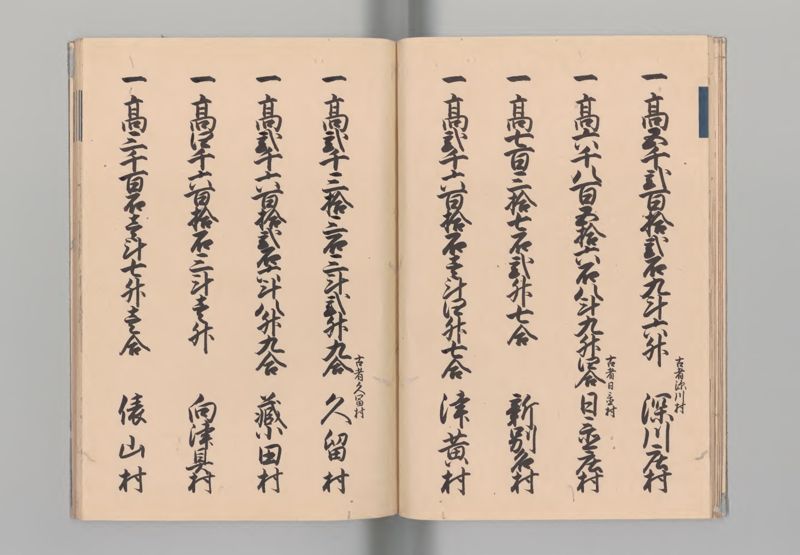 一 高五千弐百拾弐石九斗六升 古者深川村 深川庄村
一 高六千八百五拾六石八斗九升四合 古者日置村 日置庄村
一 高七百三拾七石弐升七合 新別名村
一 高弐千六百拾石壱斗四升七合 津黄村
一 高弐千三拾三石三斗弐升九合 古者久留村 久留村
一 高弐千六百拾弐石六斗八升九合 蔵小田村
一 高四千六百拾石三斗壱升 向津具村
一 高三千百石壱斗七升壱合 俵山村